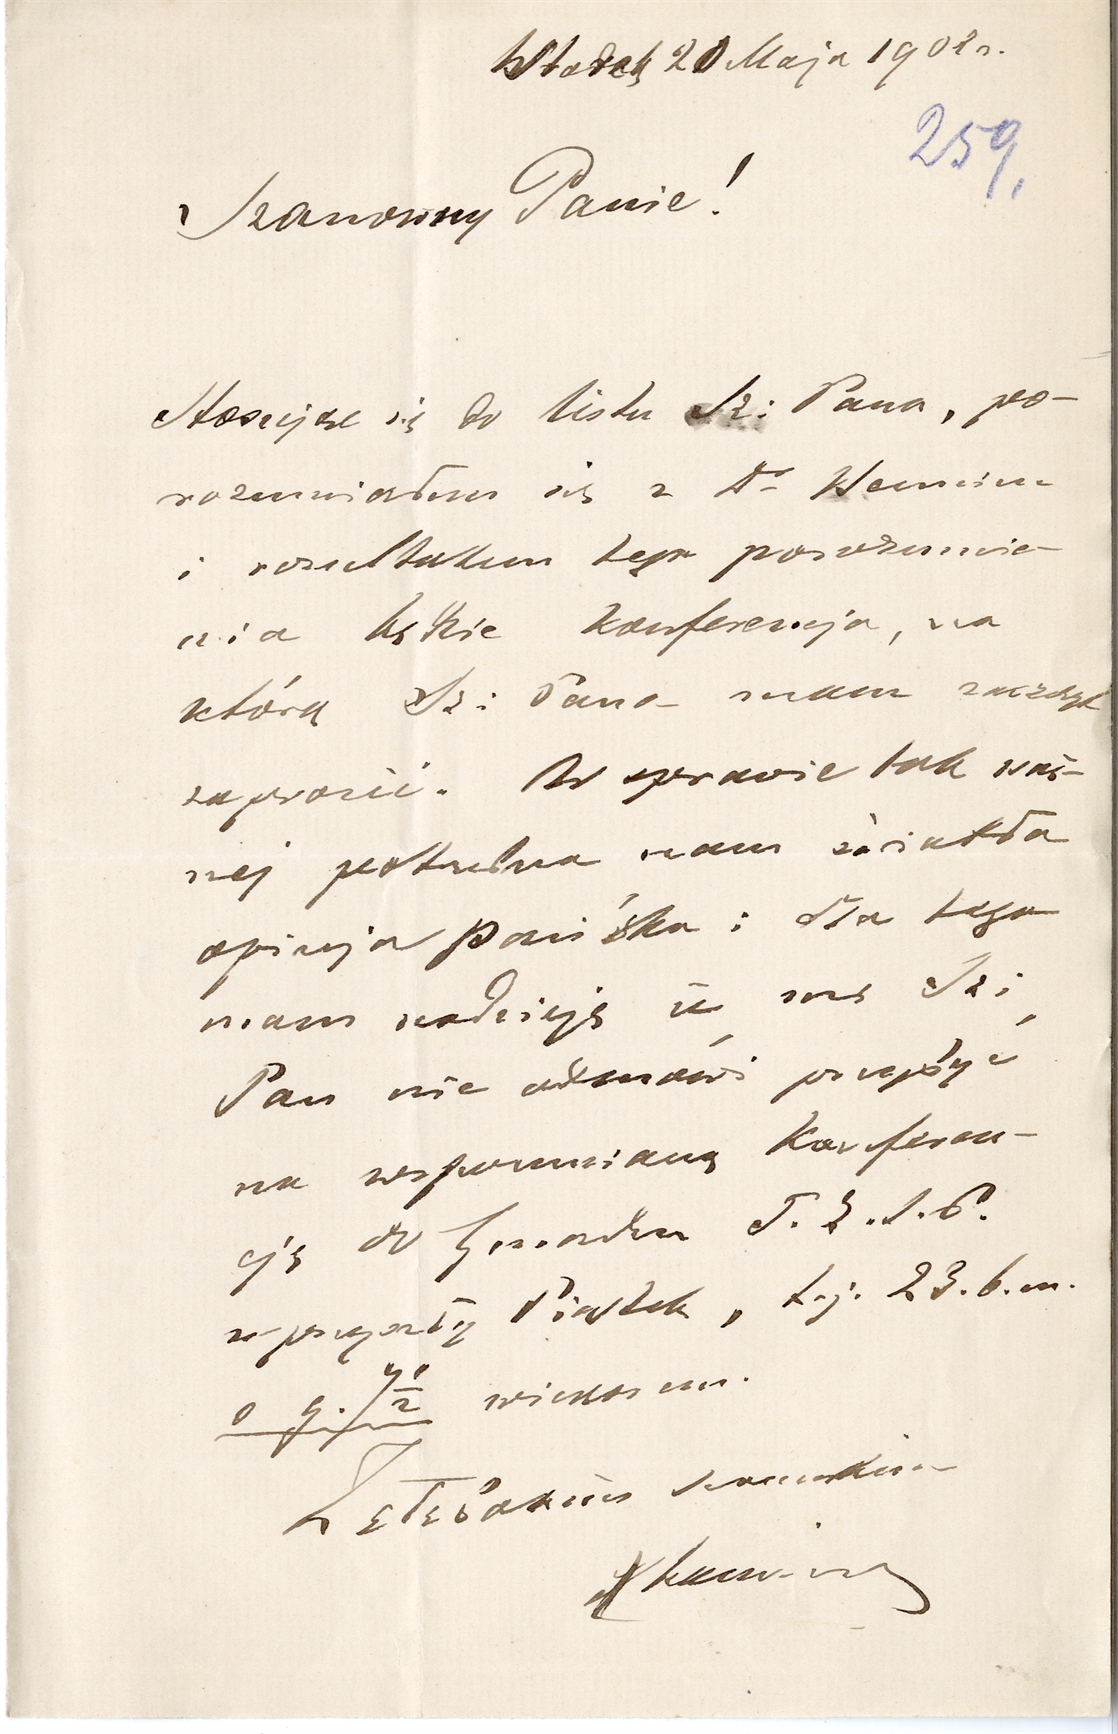 Wtorek 20 Maja 1902 r.
259,
Szanowny Panie!
Stosując się do listu Sz: Pana, po-
rozumiałem się z Dr
i rezultatem tego porozumie-
nia będzie konferencja, na
którą Sz: Pana mam zaszczyt
zaprosić. W sprawie tak waż-
nej potrzebna nam światła
opinja Pańska i dla tego
mam nadzieję że nas Sz:
Pan nie odmówi przybyć
na wspomnianą Konferen-
cję do T. Z. S. P.
w przyszły Piątek, t.j. 23. b.m.
o g. 7 1/2 wieczorem.
Z głębokim szacunkiem